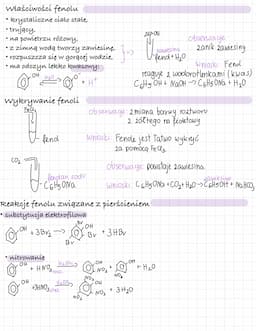 Właściwości fenolu
• krystaliczne ciało stałe,
• trujący,
• na powietrzu różowy,
• z zimną wodą tworzy zawiesinę,
• rozpuszcza się w gorącej wodzie,
• ma odczyn lekko kwasowy:
OH ⇌ O⁻ + H⁺
NaOH
zawiesina
fenol + H₂O
Obserwacje:
zanik zawiesiny
Wnioski: Fenol
reaguje z wodorotlenkami (kwas)
C₆H₅OH + NaOH → C₆H₅ONa + H₂O
Wykrywanie fenoli
FeCl₃
fenol
Obserwacje: zmiana barwy roztworu
z żółtego na fioletowy
Wnioski: Fenole jest łatwo wykryć
za pomocą FeCl₃
CO₂
fenolan sodu
C₆H₅ONa
Obserwacje: powstaje zawiesina
Wnioski: C₆H₅ONa + CO₂ + H₂O → C₆H₅OH + NaHCO₃
Reakcje fenolu związane z pierścieniem
• substytucja elektrofilowa
OH + 3Br₂ → OH Br Br Br + 3HBr
• nitrowanie
OH + HNO₃ → OH NO₂ , OH NO₂ + H₂O
OH + 3HNO₃ → OH NO₂ NO₂ NO₂ + 3H₂O